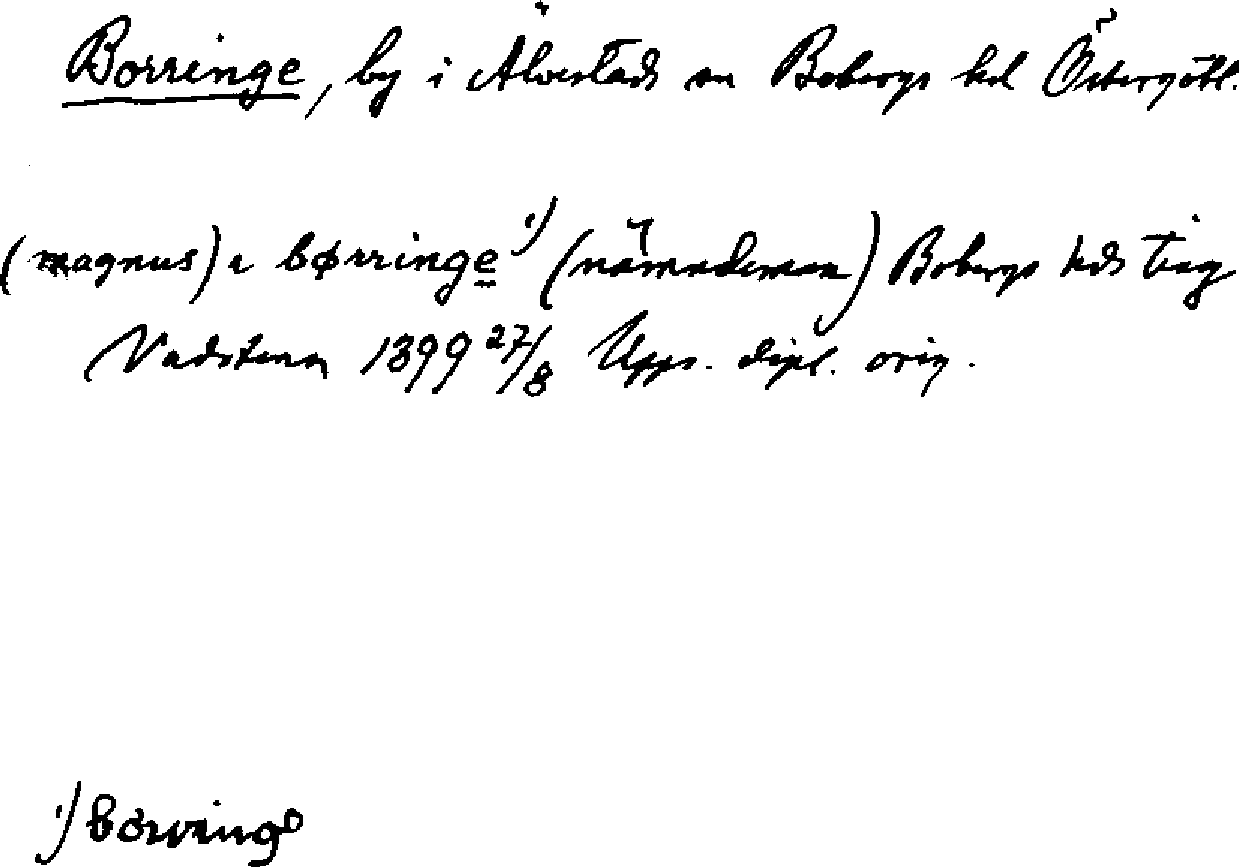 Borringe, by i Älvestads sn Bobergs hd Östergötl.
(magnus) i børringe ¹) (nämndeman) Bobergs hds ting
Vadstena 1399 27/8 Upps. dipl. orig.
¹) børring